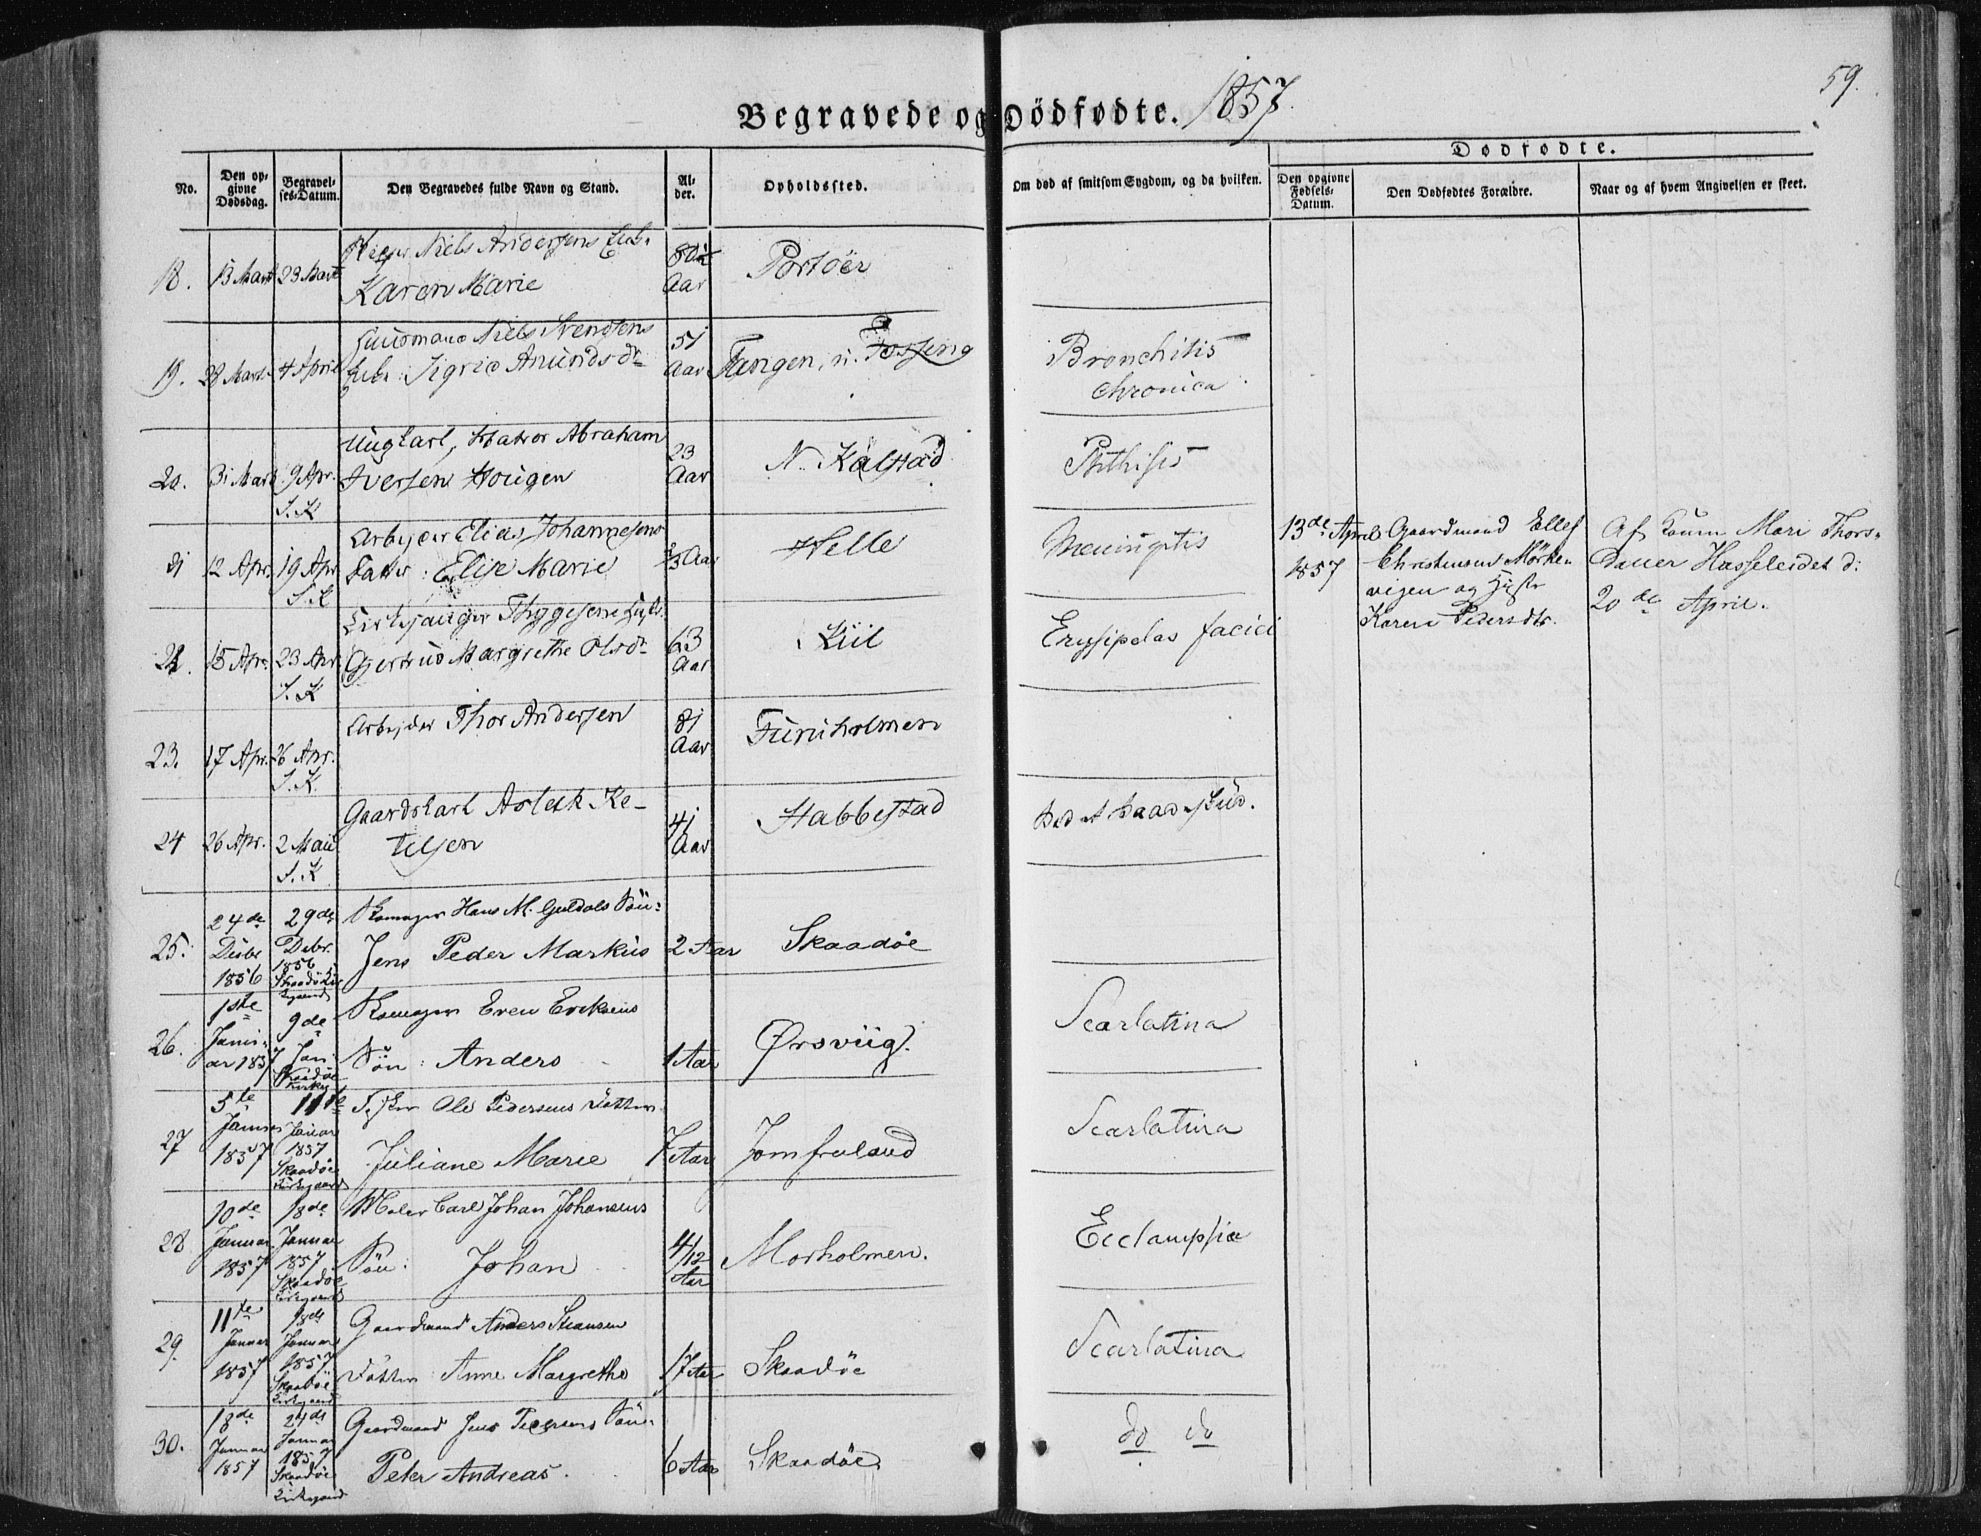 59.
Begravede og Dödfødte. 1857.
Dødfødte.
No.
Den opgivne Dødsdag.
Begravelses-Datum.
Den Begravedes fulde Navn og Stand.
Alder.
Opholdssted.
Om død af smitsom Sygdom, og da hvilken.
Den opgivne Fødsels-Datum.
Den Dødfødtes Forældre.
Naar og af hvem Angivelsen er skeet.
18. 13 Marts 23 Marts Niels Andersens
Karen Marie Aar Portöer
19. 28 Marts 4 April Huusmand Niels Svendsens 51
Sigrid Anundsdr Aar Tangen, u. Fossing Bronchitis
chronica
20. 31 Marts 9 Apr. Ungkarl, Matros Abraham 23
Iversen Hougen Aar N. Kalstad Phthisis
S. K
21 12 Apr. 19 Apr Arbejder Elias Johannesens
Datter: Elise Marie Aar Helle Meningitis
S. K
13de April Gaardmand Ellef Af Mari Thors-
1857 Christensens Mörke- Hasseleidet d:
vigen og Hustr 20de April.
Karen Pedersdtr.
22. 15 Apr. 23 Apr. Kirkesanger Thygesens
Gjertrud Margrethe Olsdr 63 Aar Kiil Erysipelas faciei
S. K
23. 17 Apr. 26 Apr. Arbejder Thor Andersen 81 Aar Furuholmen
S. K.
24 26 Apr. 2 Mai Gaardskarl Aslak Ke-
telsen 41 Aar Stabbestad Vaadeskud.
S. K
25. 24de Decbr 1856 29de Debr. 1856 Skomager Hans M. Guldals Sön:
Jens Peder Markus 2 Aar Skaadöe
26. 1ste Januar 1857 9de Jan. Skaadöe Kirkeg Skomager Even Eriksens
Sön: Anders 1 Aar Ørsviig. Scarlatina
27 5te Januar 1857 11te Januar 1857 Skaadöe Kirkegaard Fisker Ole Pedersens Datter
Juliane Marie 7 Aar Jomfruland Scarlatina
28 10de Januar 1857 18de Januar 1857 Skaadöe Kirkegaard Maler Carl Johan Johansens
Sön: Johan 4/12 Aar Morholmen. Ecclampsia
29. 11te Januar 1857 18de Januar 1857 Skaadöe Kirkegaard Gaardmand Anders
Datter Anne Margrethe 17 Aar Skaadöe Scarlatina
30. 18de Januar 1857 24de Januar 1857 Skaadöe Kirkegaard Gaardmand Jens Pedersens Sön:
Peter Andreas. 6 Aar Skaadöe do do